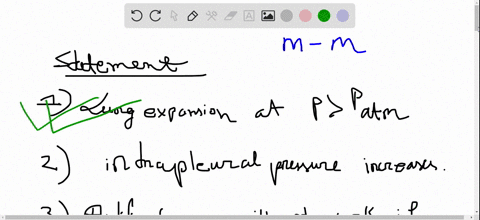 m - m
Statement
1) Lung expansion at P > Patm
2) intrapleural pressure increases.
3)